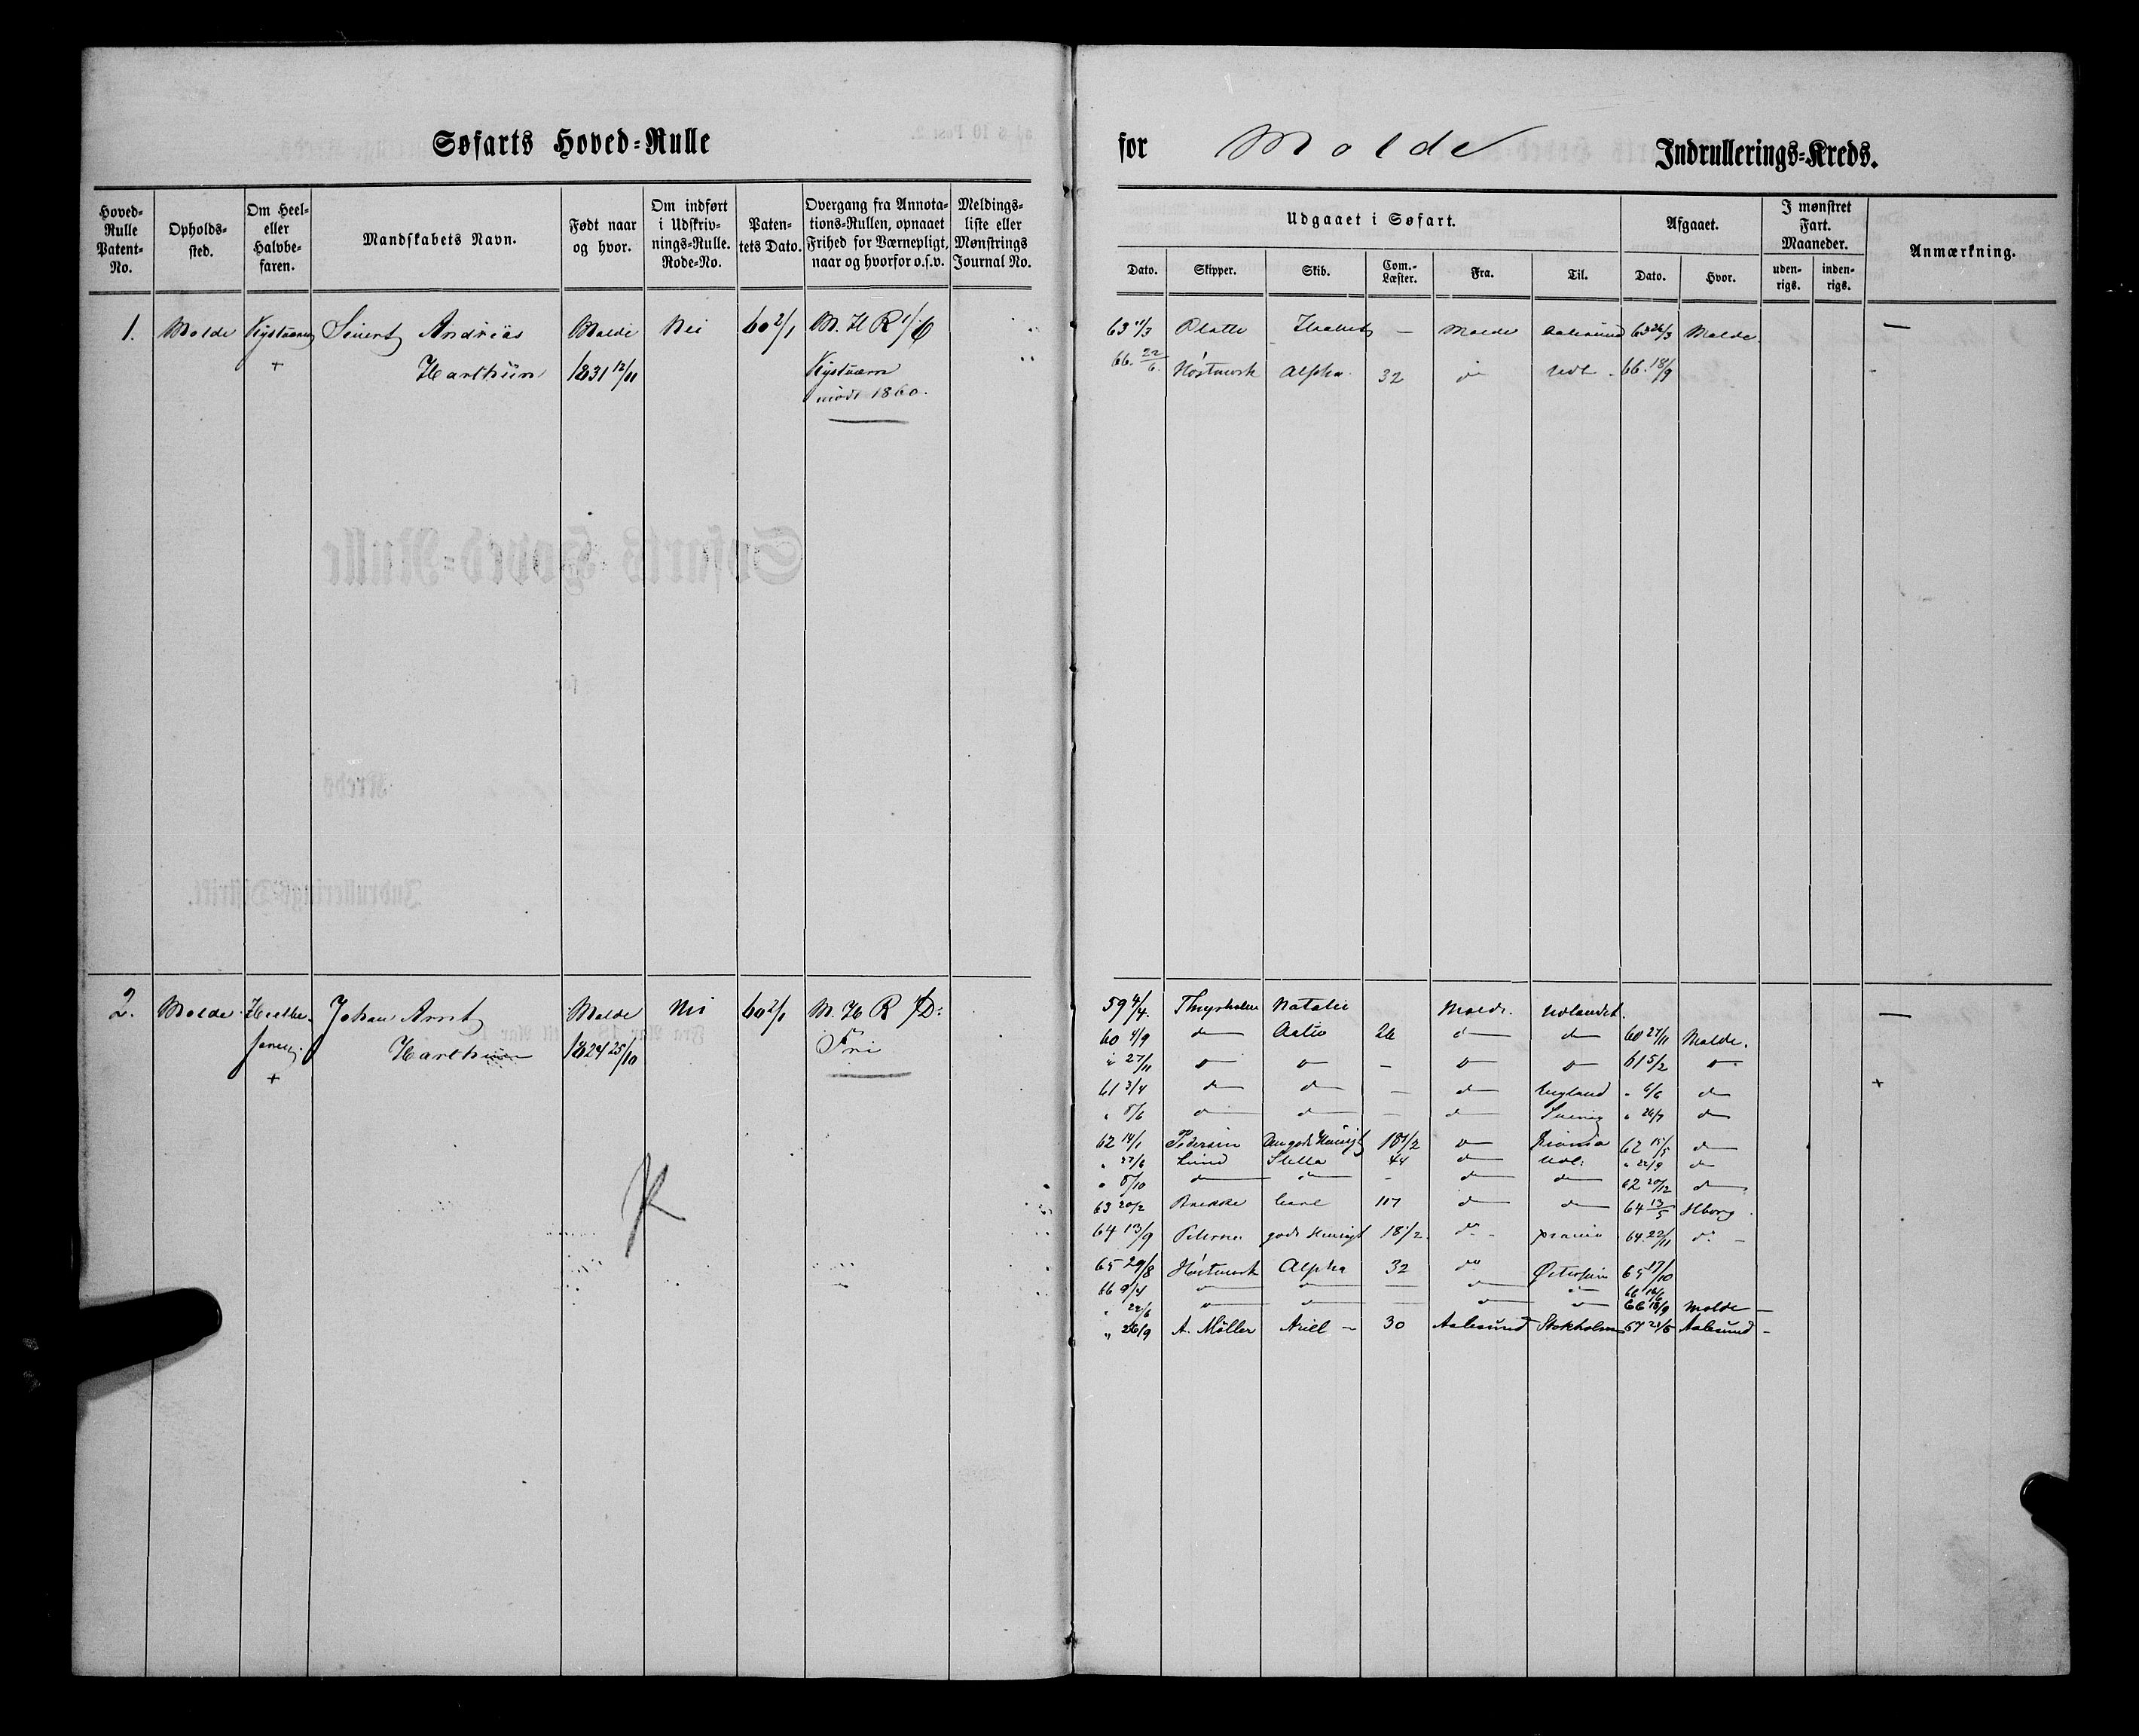 Søfarts Hoved-Rulle
for Molde Indrullerings-Kreds.
Hoved-Rulle Patent-No.
Opholds-sted.
Om Heel- eller Halvbe-faren.
Mandskabets Navn.
Født naar og hvor.
Om indført i Udskriv-nings-Rulle. Rode-No.
Paten-tets Dato.
Overgang fra Annota-tions-Rullen, opnaaet Frihed for Værnepligt, naar og hvorfor o.s.v.
Meldings-liste eller Mønstrings Journal No.
Udgaaet i Søfart.
Afgaaet.
I mønstret Fart. Maaneder.
Anmærkning.
Dato. Skipper. Skib. Com.-Læster. Fra. Til. Dato. Hvor. uden-rigs. inden-rigs.
1. Molde Sivert Andreas Molde Nei 60 2/1 M. H R 1/6
+ Harthun 1831 12/11 Kystværn
1860.
63 Platte — Molde Aalesund 63 26/3 Molde. —
66. 22/6. Høstmark Alpha 32 do Udl. 66. 18/9
2. Molde Heelbe- Johan Arnt Molde Nei 60 2/1 M. H R 1/D:
faren. Harthun 1824 25/10 Fri
+
59 4/4. Thyrholm Natalie Molde. Udlandet. —
60 4/9 do Activ 26 do do 60 27/11 Molde.
" 27/11 do do — do do 61 5/2 do
61 3/4 do do — do England " 6/6 do +
" 8/6 do do — do " 26/7 do
62 14/1 Pedersen 18 1/2 do 62 15/5 do
" 27/6 Lund Stella 44 do Udl: " 22/9 do
" 8/10 do do - do do 62 20/12 do
63 20/2 Brekke 117 do do 64 13/5
64 13/9 18 1/2. do 64. 22/11 do
65 29/8 Høstmark Alpha 32 do 65 17/10
66 9/4 do do do do 66 16/6
" 22/6 do do — do do 66 18/9 Molde —
" 26/9 A. Møller Ariel — 30 Aalesund Stokholm 67 21/5 Aalesund —